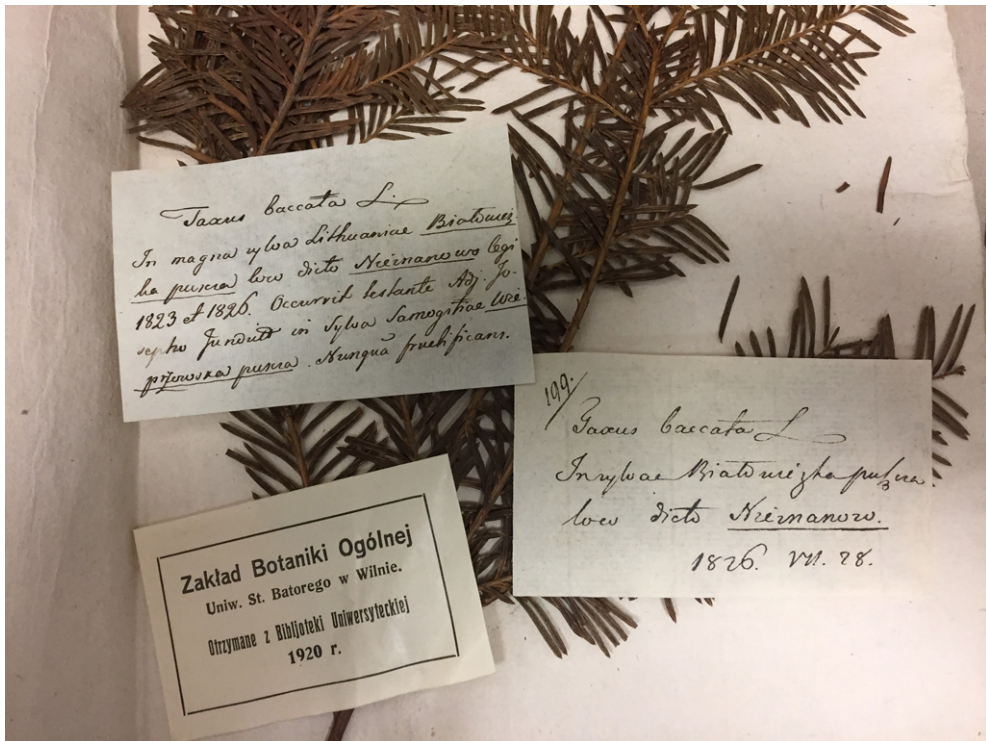 Taxus baccata L.
In magna sylva Lithuaniae Białowież
ka puscza loco dicto Nieznanowo legi
1823 et 1826. Occurrit testante Adj. Jo-
sepho Jundzill in Sylva Samogitiae Wie-
przowska puscza. Nunquā fructificans.
199.
Taxus baccata L
In sylvae Białowiezka puszcza.
loco dicto Nieznanowo.
1826. VII. 28.
Zakład Botaniki Ogólnej
Uniw. St. Batorego w Wilnie.
Otrzymane z Bibljoteki Uniwersyteckiej
1920 r.